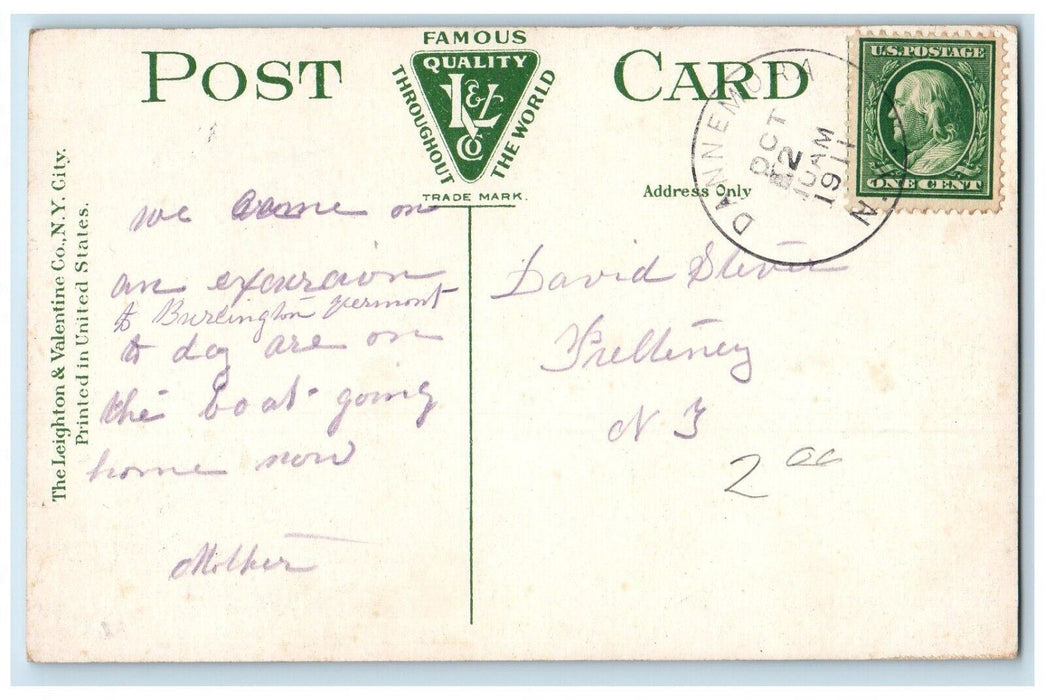 POST CARD
FAMOUS
QUALITY
THROUGHOUT
THE WORLD
L&V
CO
TRADE MARK.
The Leighton & Valentine Co., N.Y. City.
Printed in United States.
Address Only
DANNEMORA N.Y.
OCT
2
10 AM
1911
U.S. POSTAGE
ONE CENT
we came on
an excursion
to Burlington Vermont
to day are on
the boat going
home now
Mother
David
Pulteney
N Y
2 00